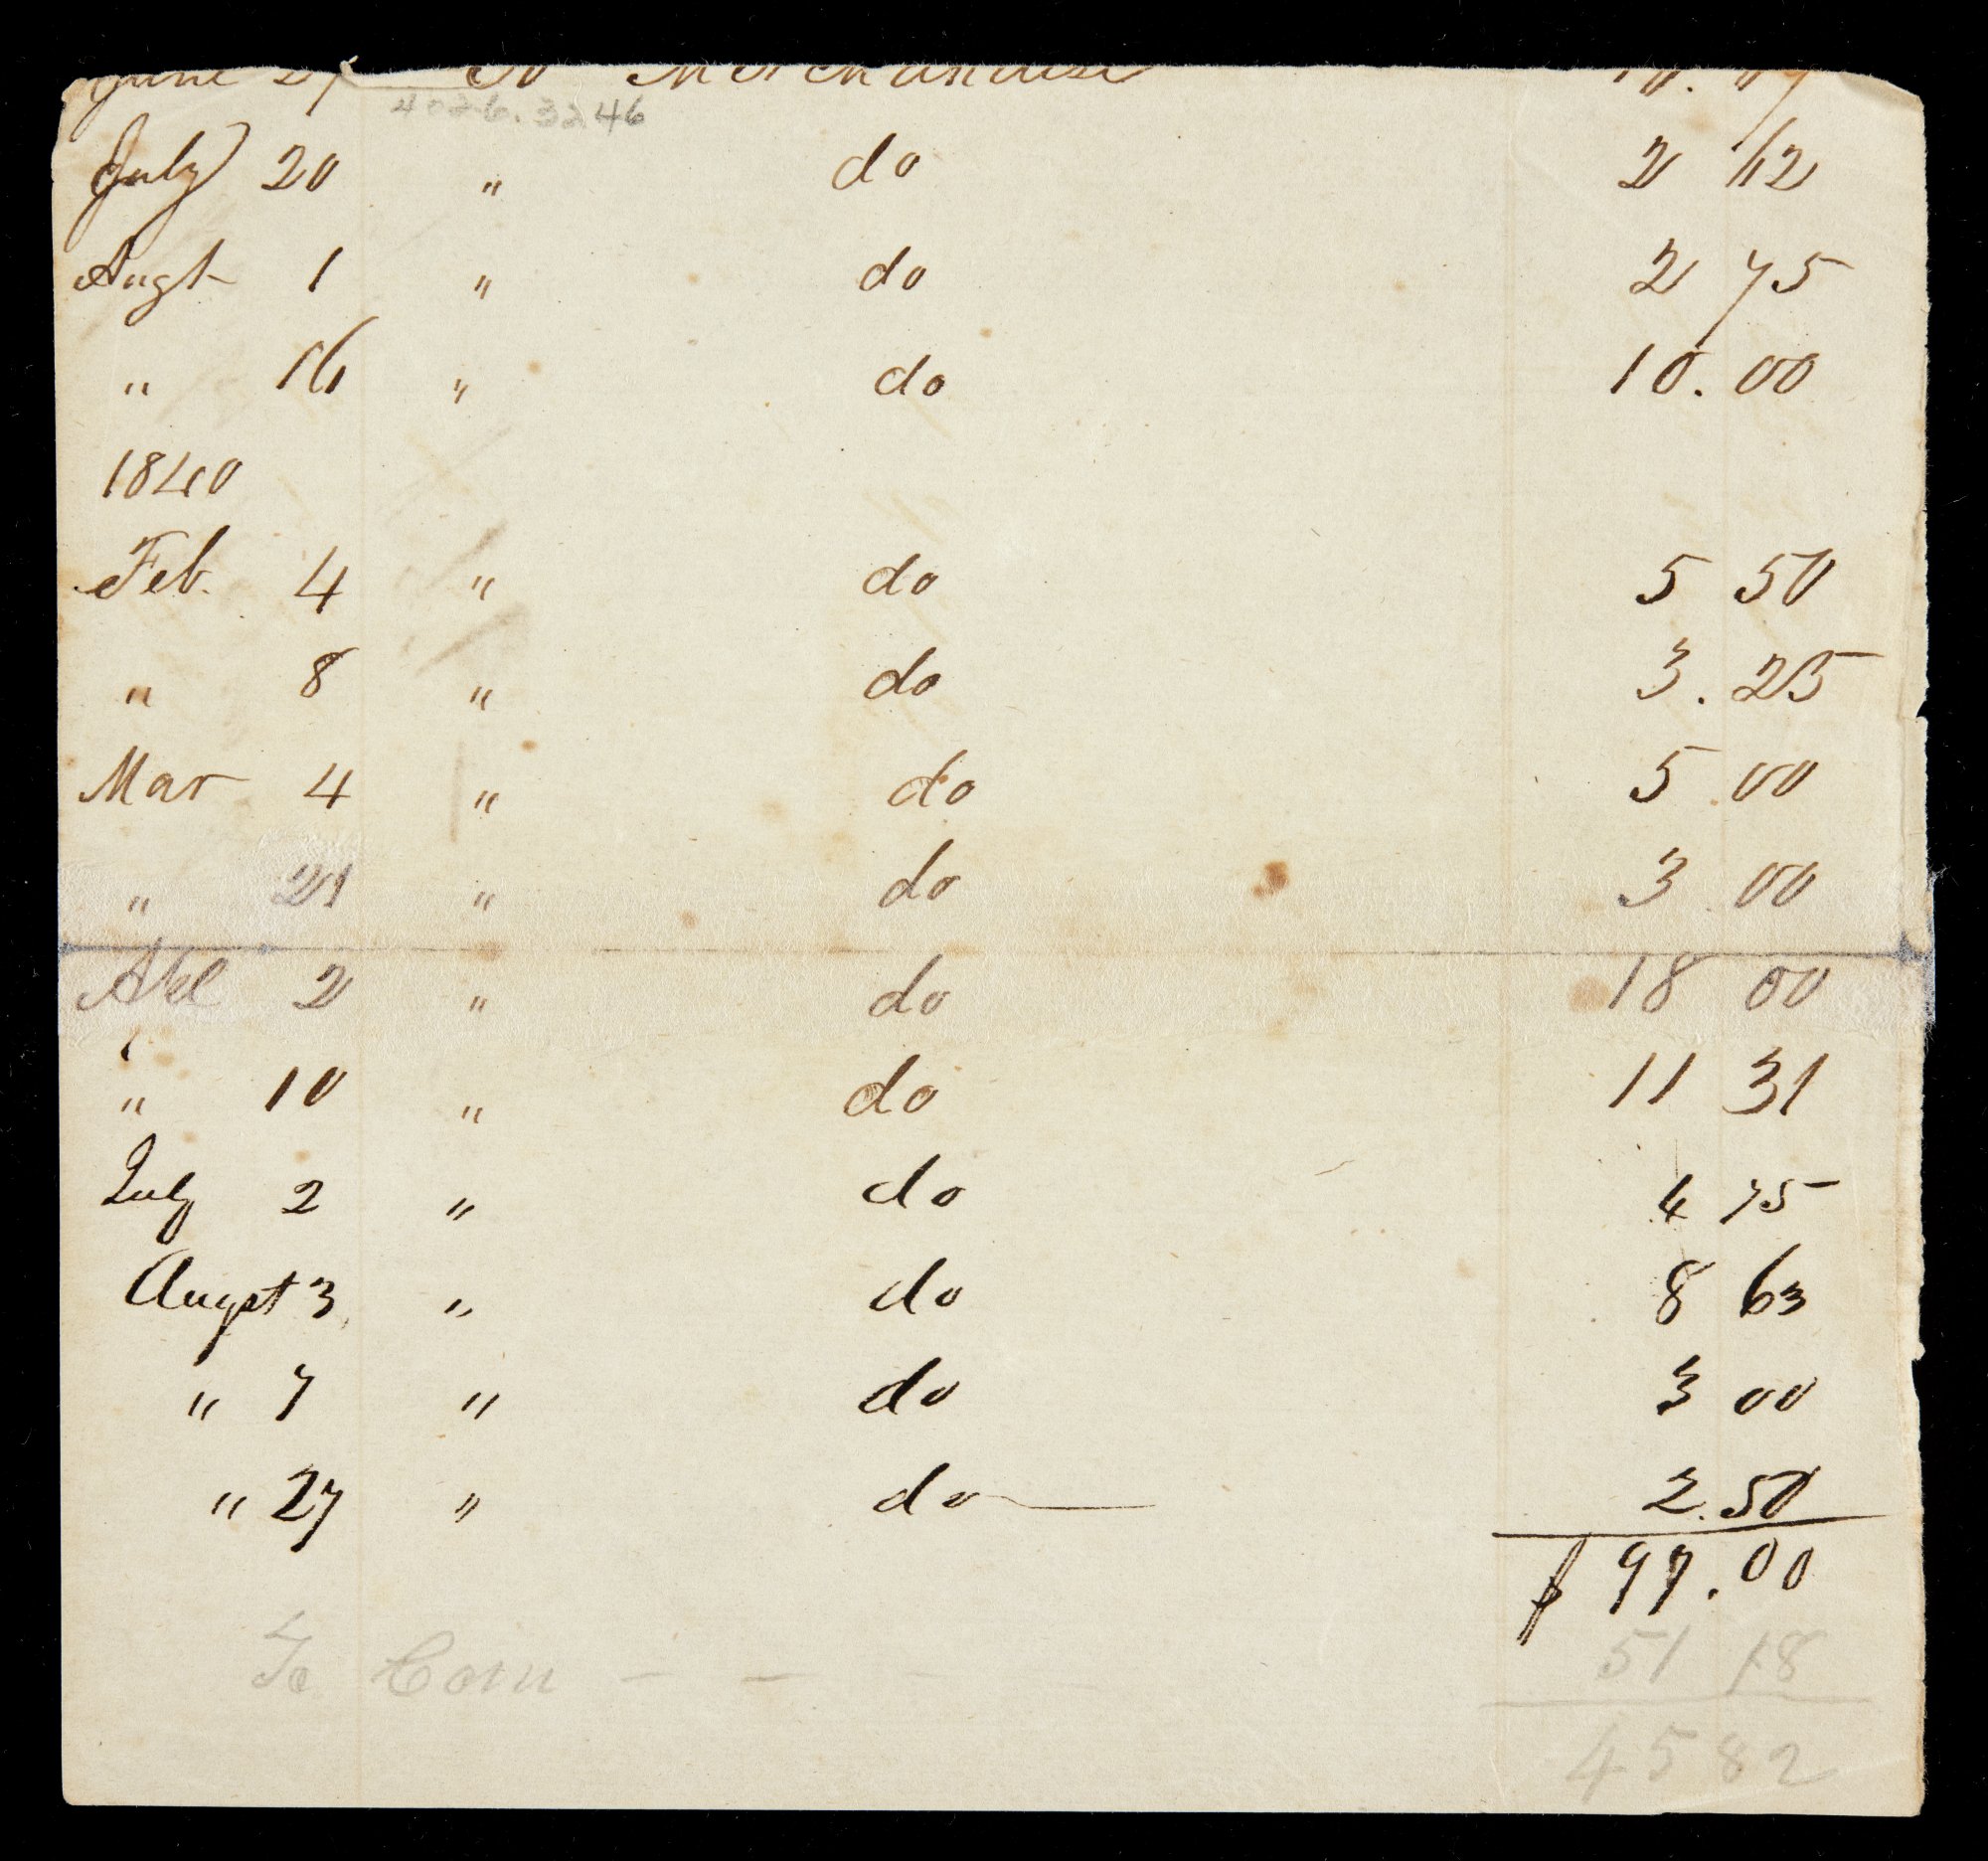 June To Merchandise 16.69
4026.3246
July 20 " do 2 62
Augt 1 " do 2 75
" 16 " do 10.00
1840
Feb. 4 " do 5 50
" 8 " do 3.25
Mar 4 " do 5 00
" 21 " do 3 00
Apl 2 " do 18 00
" 10 " do 11 31
July 2 " do 4 75
Augst 3 " do 8 63
" 7 " do 3 00
" 27 " do 2.50
$ 97.00
To Corn - - 51 18
45 82